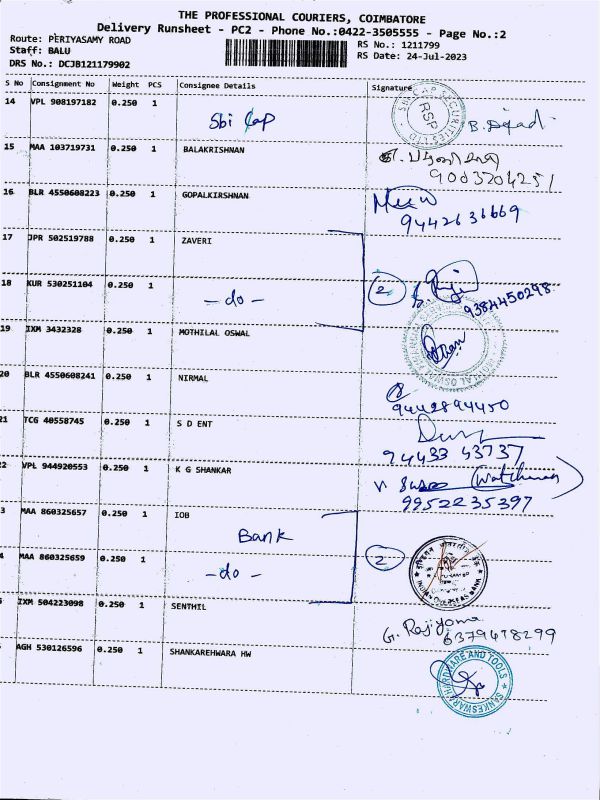 THE PROFESSIONAL COURIERS, COIMBATORE
Delivery Runsheet - PC2 - Phone No.:0422-3505555 - Page No.:2
Route: PERIYASAMY ROAD
RS No.: 1211799
Staff: BALU
RS Date: 24-Jul-2023
DRS No.: DCJB121179902
S No Consignment No Weight PCS Consignee Details Signature
14 VPL 908197182 0.250 1 Sbi Cap
SBI CAP SECURITIES LTD
RSP
15 MAA 103719731 0.250 1 BALAKRISHNAN
9003204251
16 BLR 4550608223 0.250 1 GOPALKIRSHNAN
9442636669
17 JPR 502519788 0.250 1 ZAVERI
18 KUR 530251104 0.250 1 -do- 2
9384450298
19 IXM 3432328 0.250 1 MOTHILAL OSWAL
20 BLR 4550608241 0.250 1 NIRMAL
9442894450
21 TCG 40558745 0.250 1 S D ENT
94433 43737
22 VPL 944920553 0.250 1 K G SHANKAR
(Watchman)
9952235397
3 MAA 860325657 0.250 1 IOB
Bank
4 MAA 860325659 0.250 1 -do- 2
INDIAN OVERSEAS BANK
IXM 504223098 0.250 1 SENTHIL
6379418299
AGH 530126596 0.250 1 SHANKAREHWARA HW
SANKESWARA HARDWARE AND TOOLS